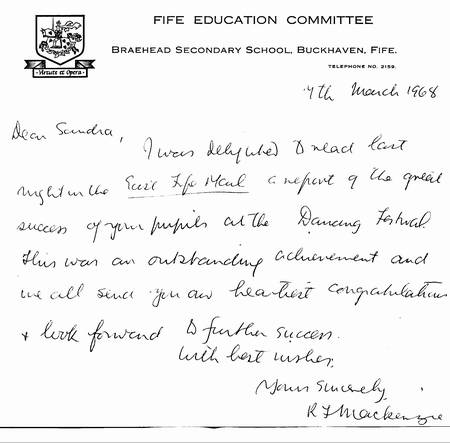 FIFE EDUCATION COMMITTEE
BRAEHEAD SECONDARY SCHOOL, BUCKHAVEN, FIFE.
TELEPHONE NO. 2159.
Virtute et Opera
7th March 1968
Dear Sandra,
I was delighted to read last
night in the East Fife Mail a report of the great
success of your pupils at the Dancing Festival.
This was an outstanding achievement and
we all send you our heartiest congratulations
& look forward to further success.
With best wishes,
Yours sincerely,
R F Mackenzie